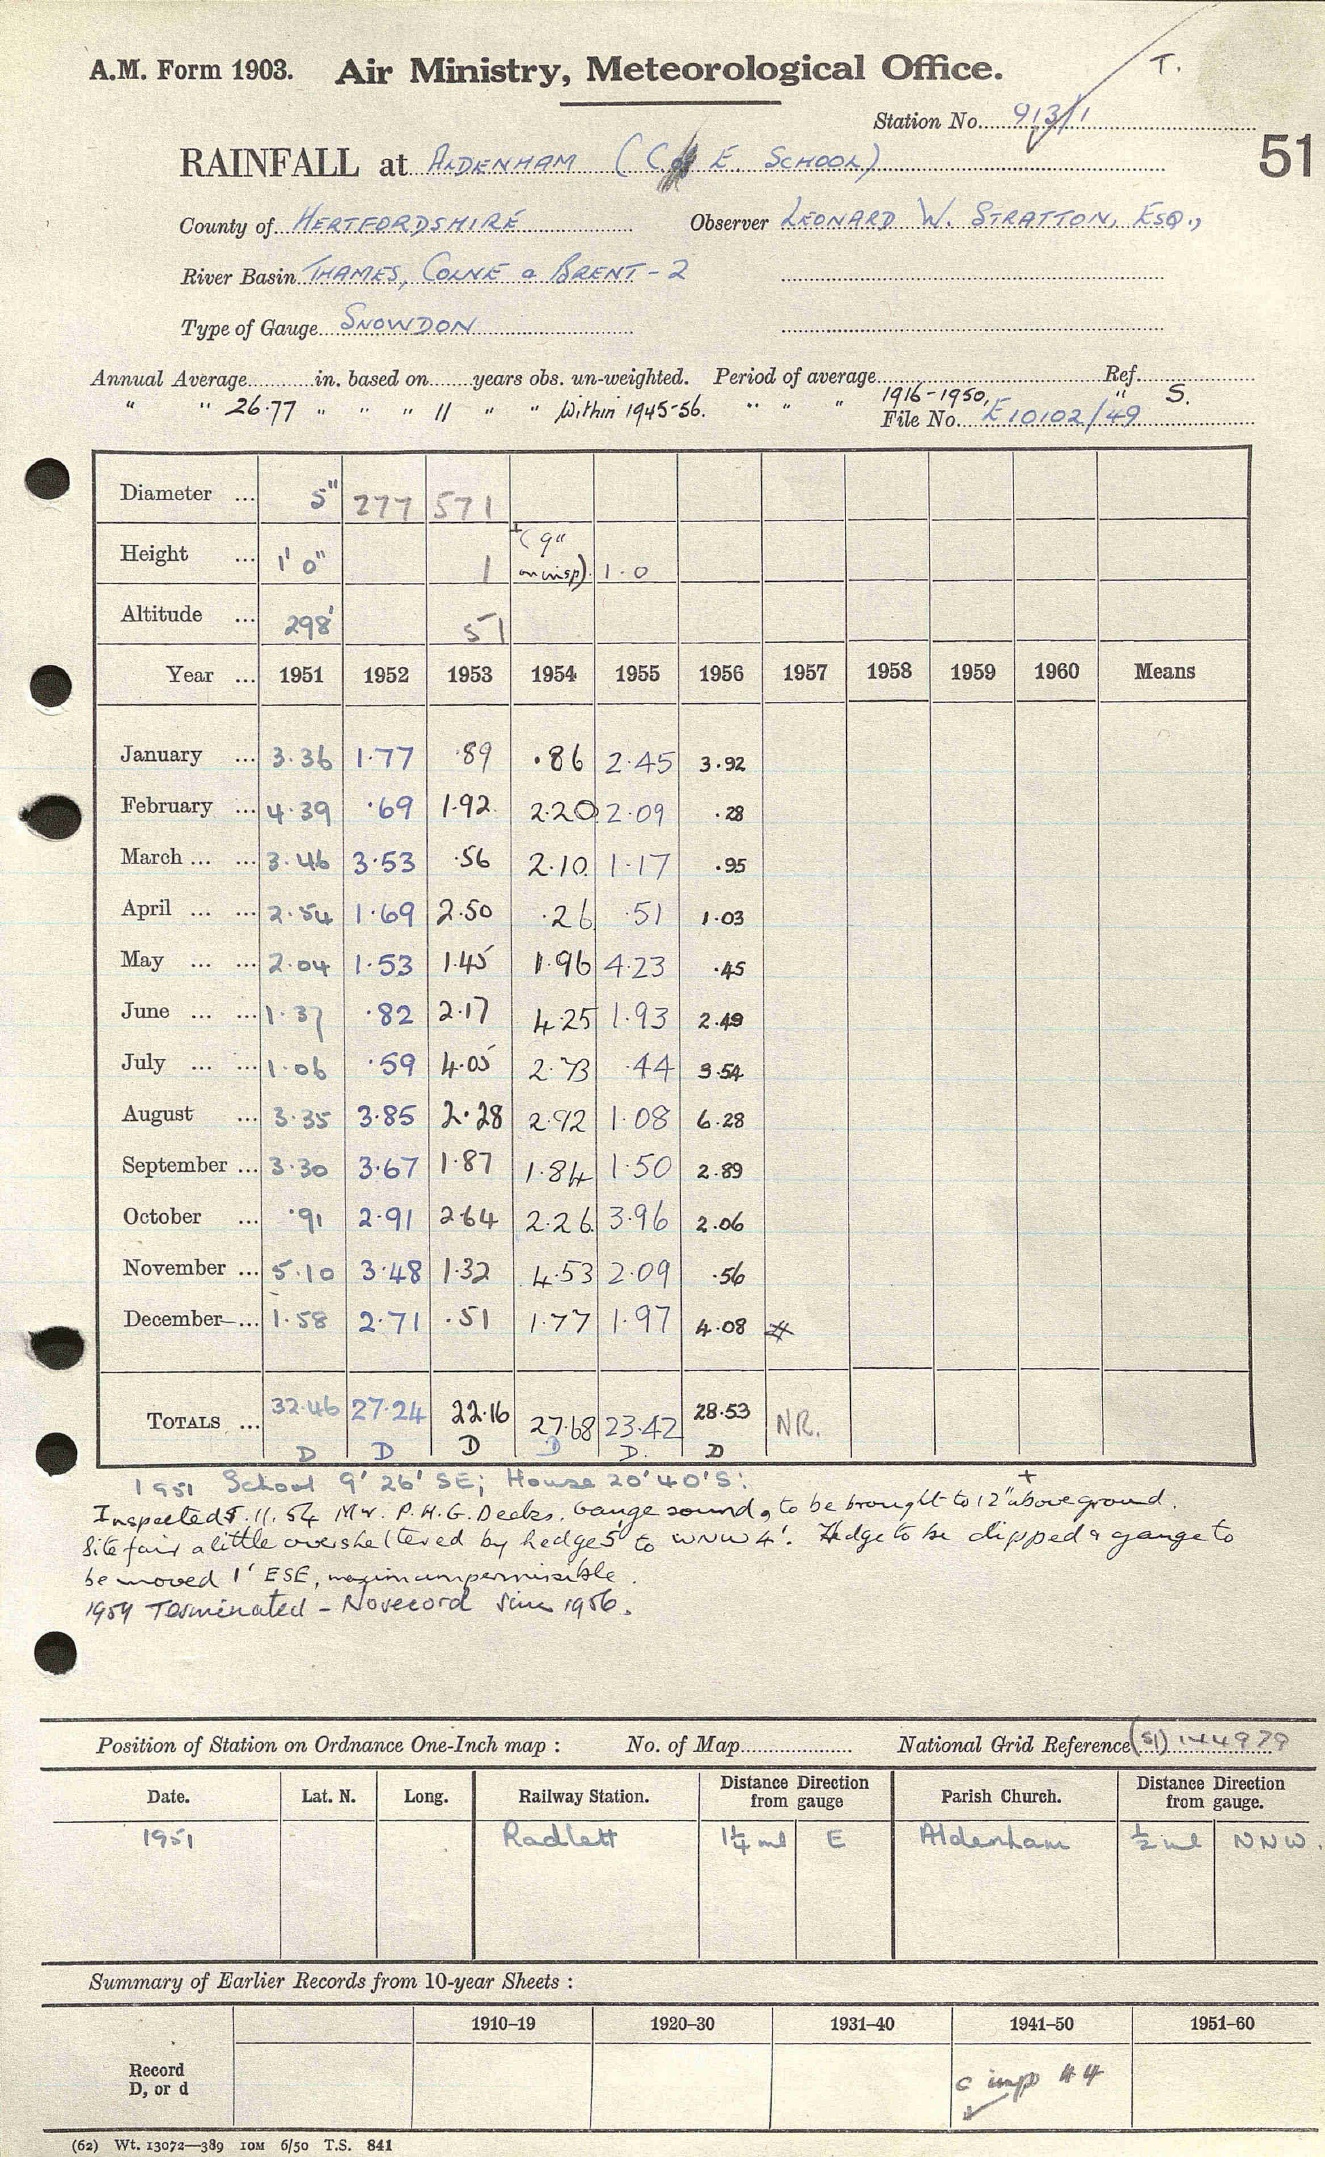 A.M. Form 1903. Air Ministry, Meteorological Office. T.
Station No. 913/1
51
RAINFALL at ALDENHAM (C. of E. SCHOOL)
County of HERTFORDSHIRE Observer LEONARD W. STRATTON, ESQ.,
River Basin THAMES, COLNE & BRENT - 2
Type of Gauge SNOWDON
Annual Average in. based on years obs. un-weighted. Period of average Ref.
" " 26.77 " " " 11 " " Within 1945-56. " " " 1916-1950, " S.
File No. E10102/49
Diameter ... 5" 277 571
Height ... 1' 0" 1 + (9" on insp) 1.0
Altitude ... 298' 51
Year ... 1951 1952 1953 1954 1955 1956 1957 1958 1959 1960 Means
January ... 3.36 1.77 .89 .86 2.45 3.92
February ... 4.39 .69 1.92 2.20 2.09 .28
March ... ... 3.46 3.53 .56 2.10 1.17 .95
April ... ... 2.54 1.69 2.50 .26 .51 1.03
May ... ... 2.04 1.53 1.45 1.96 4.23 .45
June ... ... 1.37 .82 2.17 4.25 1.93 2.49
July ... ... 1.06 .59 4.05 2.73 .44 3.54
August ... 3.35 3.85 2.28 2.92 1.08 6.28
September ... 3.30 3.67 1.87 1.84 1.50 2.89
October ... .91 2.91 2.64 2.26 3.96 2.06
November ... 5.10 3.48 1.32 4.53 2.09 .56
December ... 1.58 2.71 .51 1.77 1.97 4.08 #
TOTALS ... 32.46 27.24 22.16 27.68 23.42 28.53 NR.
D D D D D. D
1951 School 9' 26' SE; House 20' 40' S:
+
Inspected 5.11.54 Mr. P.H.G. Deeks. Gauge sound, to be brought to 12" above ground.
Site fair a little oversheltered by hedge 5' to WNW 4'. Hedge to be clipped & gauge to
be moved 1' ESE, maximum permissible.
1959 Terminated - No record since 1956.
Position of Station on Ordnance One-Inch map : No. of Map National Grid Reference (51) 144979
Date. Lat. N. Long. Railway Station. Distance Direction from gauge Parish Church. Distance Direction from gauge.
1951 Radlett 1¼ ml E Aldenham ½ ml NNW.
Summary of Earlier Records from 10-year Sheets :
1910–19 1920–30 1931–40 1941–50 1951–60
Record
D, or d
c imp 44
(62) Wt. 13072—389 10M 6/50 T.S. 841